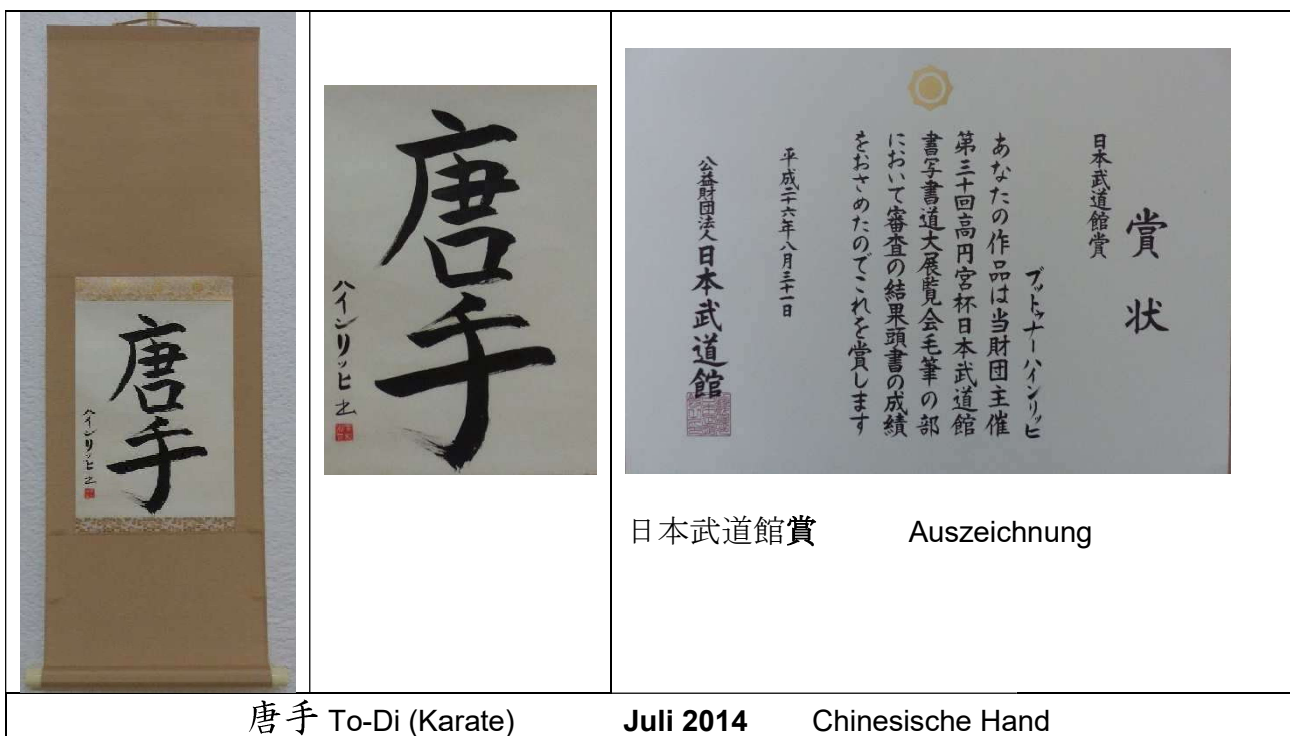 唐手
ハインリッヒ 之
唐手
ハインリッヒ 之
賞状
日本武道館賞
ブットゥナー ハインリッヒ
あなたの作品は当財団主催
第三十回高円宮杯日本武道館
書写書道大展覧会毛筆の部
において審査の結果頭書の成績
をおさめたのでこれを賞します
平成二十六年八月三十一日
公益財団法人日本武道館
日本武道館賞 Auszeichnung
唐手 To-Di (Karate) Juli 2014 Chinesische Hand